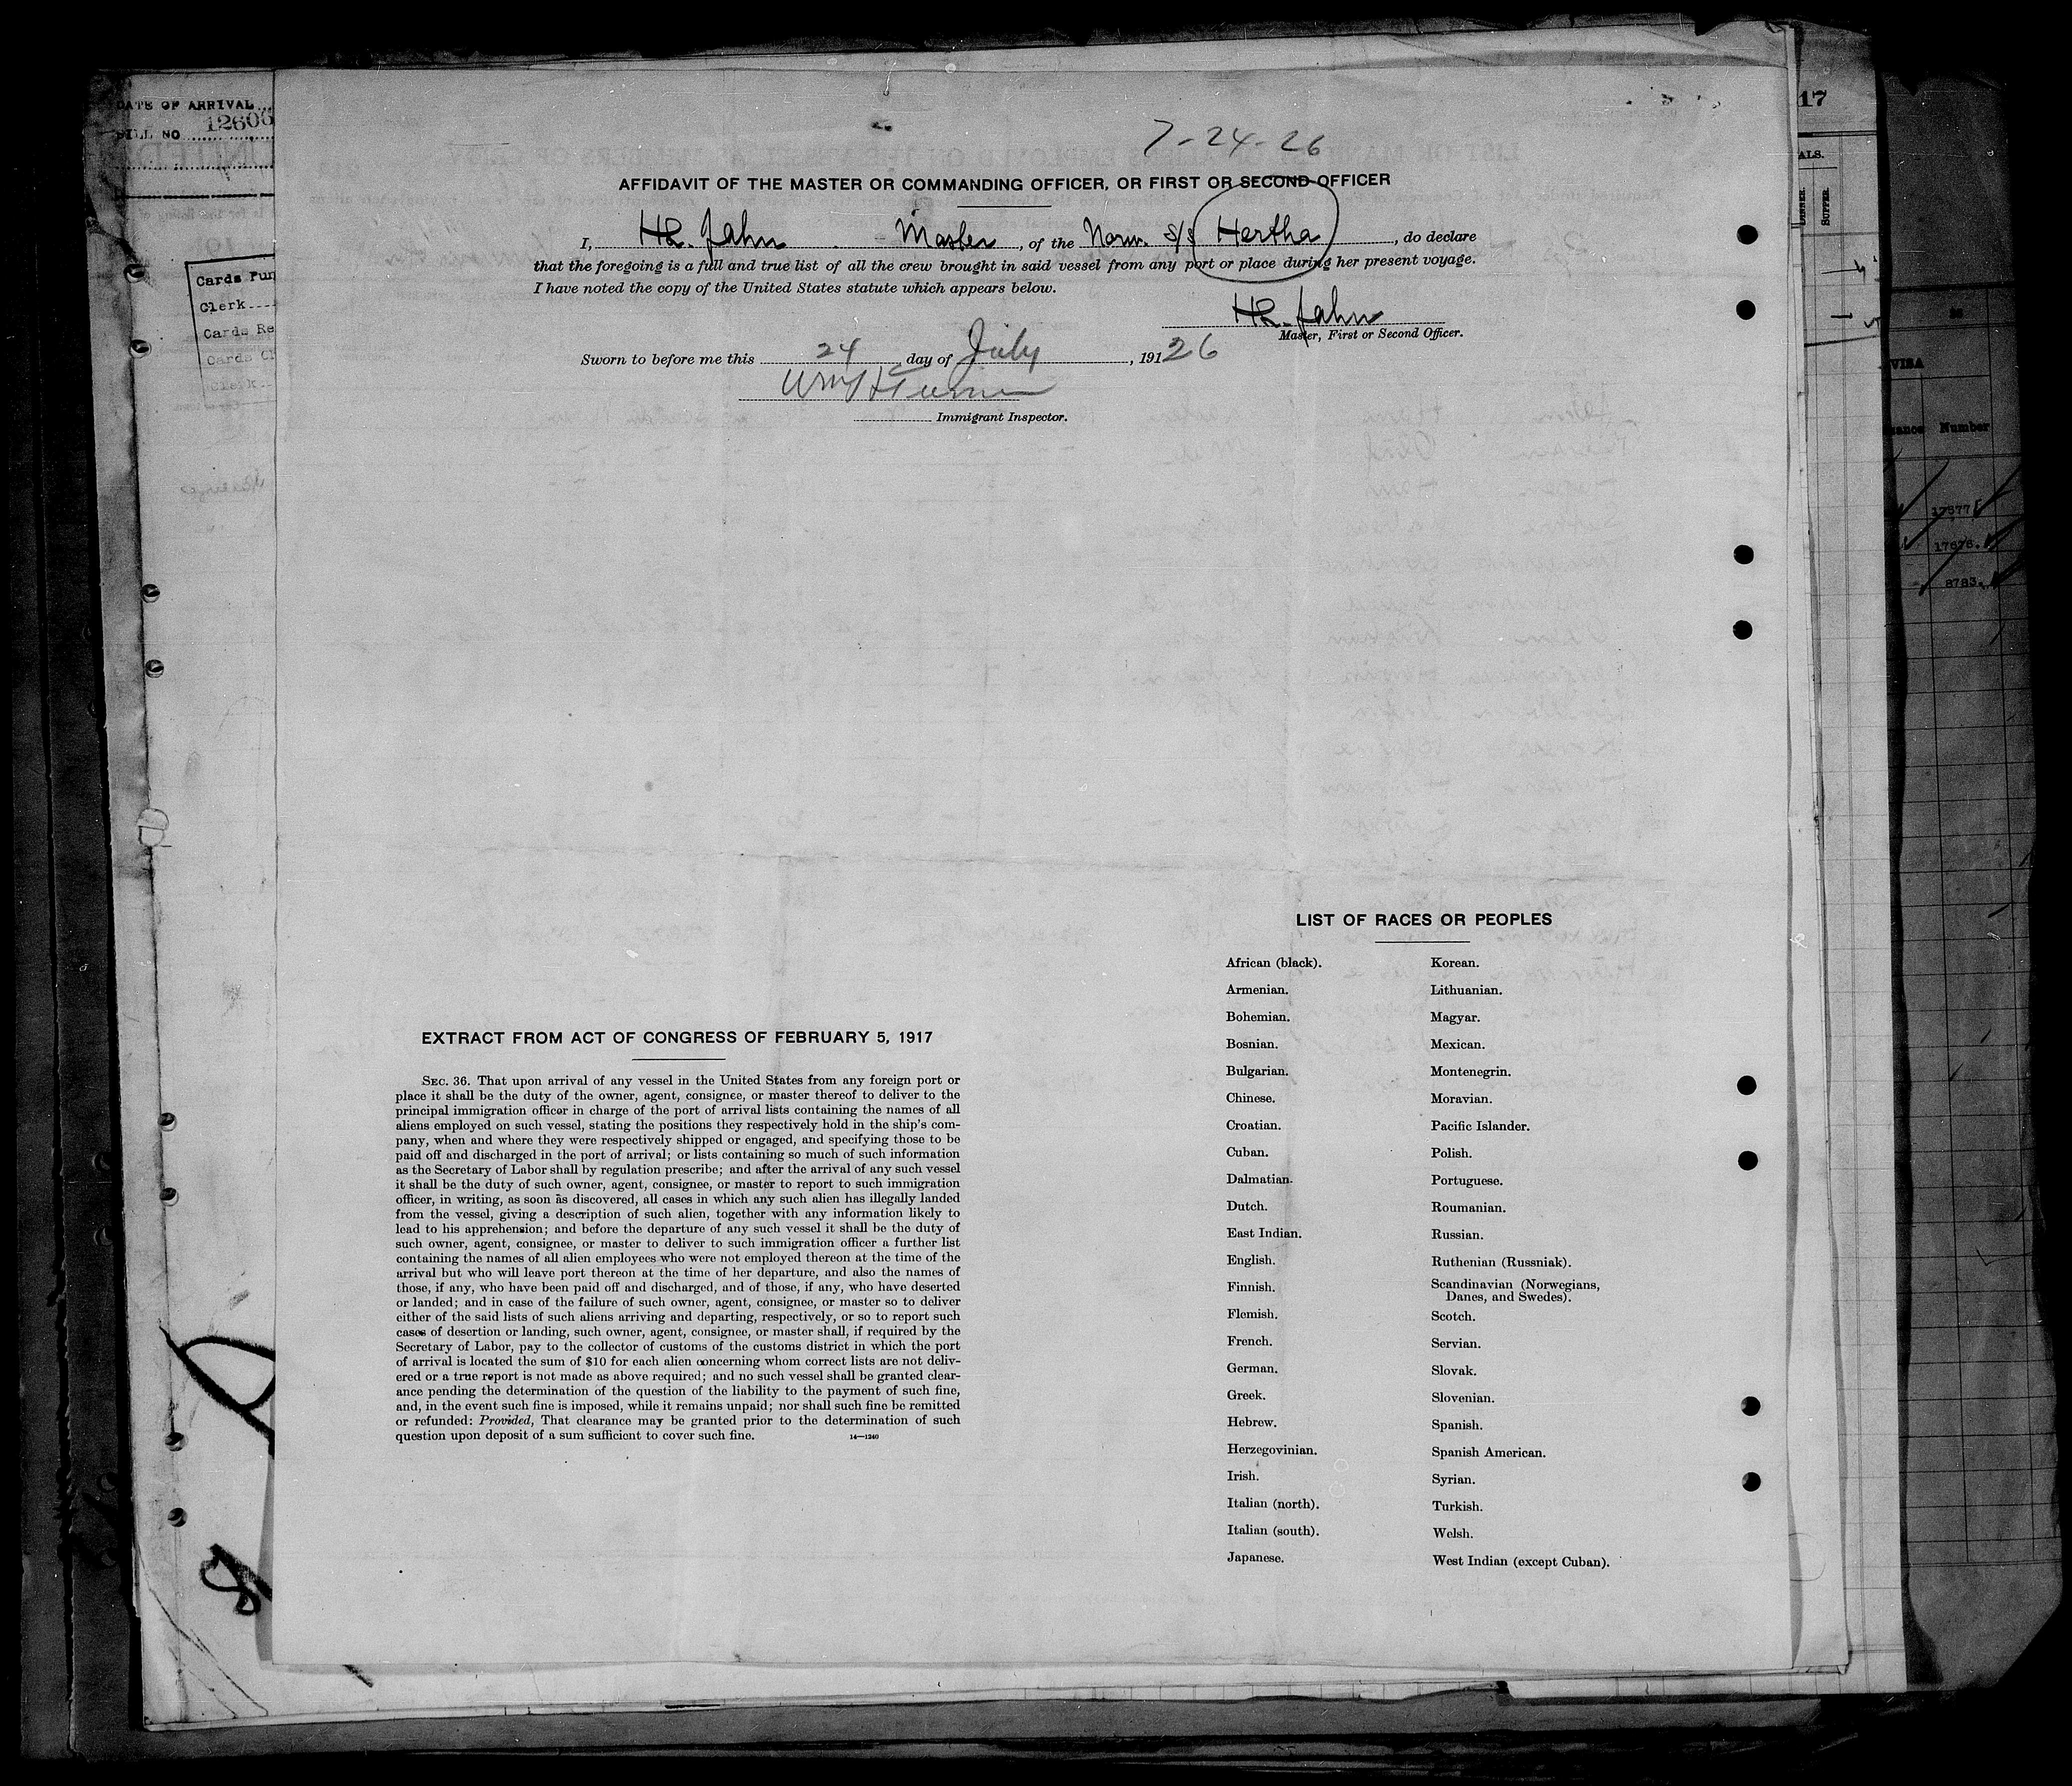 DATE OF ARRIVAL
BILL NO 12606
Cards Pun
Clerk
Cards Re
Cards Ch
Clerk
7-24-26
AFFIDAVIT OF THE MASTER OR COMMANDING OFFICER, OR FIRST OR SECOND OFFICER
I, Hl. Jahn Master, of the Norw. S/S Hertha, do declare
that the foregoing is a full and true list of all the crew brought in said vessel from any port or place during her present voyage.
I have noted the copy of the United States statute which appears below.
Hl. Jahn
Master, First or Second Officer.
Sworn to before me this 24 day of July, 19126
Wm H Turner
Immigrant Inspector.
EXTRACT FROM ACT OF CONGRESS OF FEBRUARY 5, 1917
SEC. 36. That upon arrival of any vessel in the United States from any foreign port or
place it shall be the duty of the owner, agent, consignee, or master thereof to deliver to the
principal immigration officer in charge of the port of arrival lists containing the names of all
aliens employed on such vessel, stating the positions they respectively hold in the ship's com-
pany, when and where they were respectively shipped or engaged, and specifying those to be
paid off and discharged in the port of arrival; or lists containing so much of such information
as the Secretary of Labor shall by regulation prescribe; and after the arrival of any such vessel
it shall be the duty of such owner, agent, consignee, or master to report to such immigration
officer, in writing, as soon as discovered, all cases in which any such alien has illegally landed
from the vessel, giving a description of such alien, together with any information likely to
lead to his apprehension; and before the departure of any such vessel it shall be the duty of
such owner, agent, consignee, or master to deliver to such immigration officer a further list
containing the names of all alien employees who were not employed thereon at the time of the
arrival but who will leave port thereon at the time of her departure, and also the names of
those, if any, who have been paid off and discharged, and of those, if any, who have deserted
or landed; and in case of the failure of such owner, agent, consignee, or master so to deliver
either of the said lists of such aliens arriving and departing, respectively, or so to report such
cases of desertion or landing, such owner, agent, consignee, or master shall, if required by the
Secretary of Labor, pay to the collector of customs of the customs district in which the port
of arrival is located the sum of $10 for each alien concerning whom correct lists are not deliv-
ered or a true report is not made as above required; and no such vessel shall be granted clear-
ance pending the determination of the question of the liability to the payment of such fine,
and, in the event such fine is imposed, while it remains unpaid; nor shall such fine be remitted
or refunded: Provided, That clearance may be granted prior to the determination of such
question upon deposit of a sum sufficient to cover such fine. 14—1240
LIST OF RACES OR PEOPLES
African (black).
Armenian.
Bohemian.
Bosnian.
Bulgarian.
Chinese.
Croatian.
Cuban.
Dalmatian.
Dutch.
East Indian.
English.
Finnish.
Flemish.
French.
German.
Greek.
Hebrew.
Herzegovinian.
Irish.
Italian (north).
Italian (south).
Japanese.
Korean.
Lithuanian.
Magyar.
Mexican.
Montenegrin.
Moravian.
Pacific Islander.
Polish.
Portuguese.
Roumanian.
Russian.
Ruthenian (Russniak).
Scandinavian (Norwegians,
Danes, and Swedes).
Scotch.
Servian.
Slovak.
Slovenian.
Spanish.
Spanish American.
Syrian.
Turkish.
Welsh.
West Indian (except Cuban).
17
ALS.
SUPPER.
VISA
Number
17577
17678.
8783.